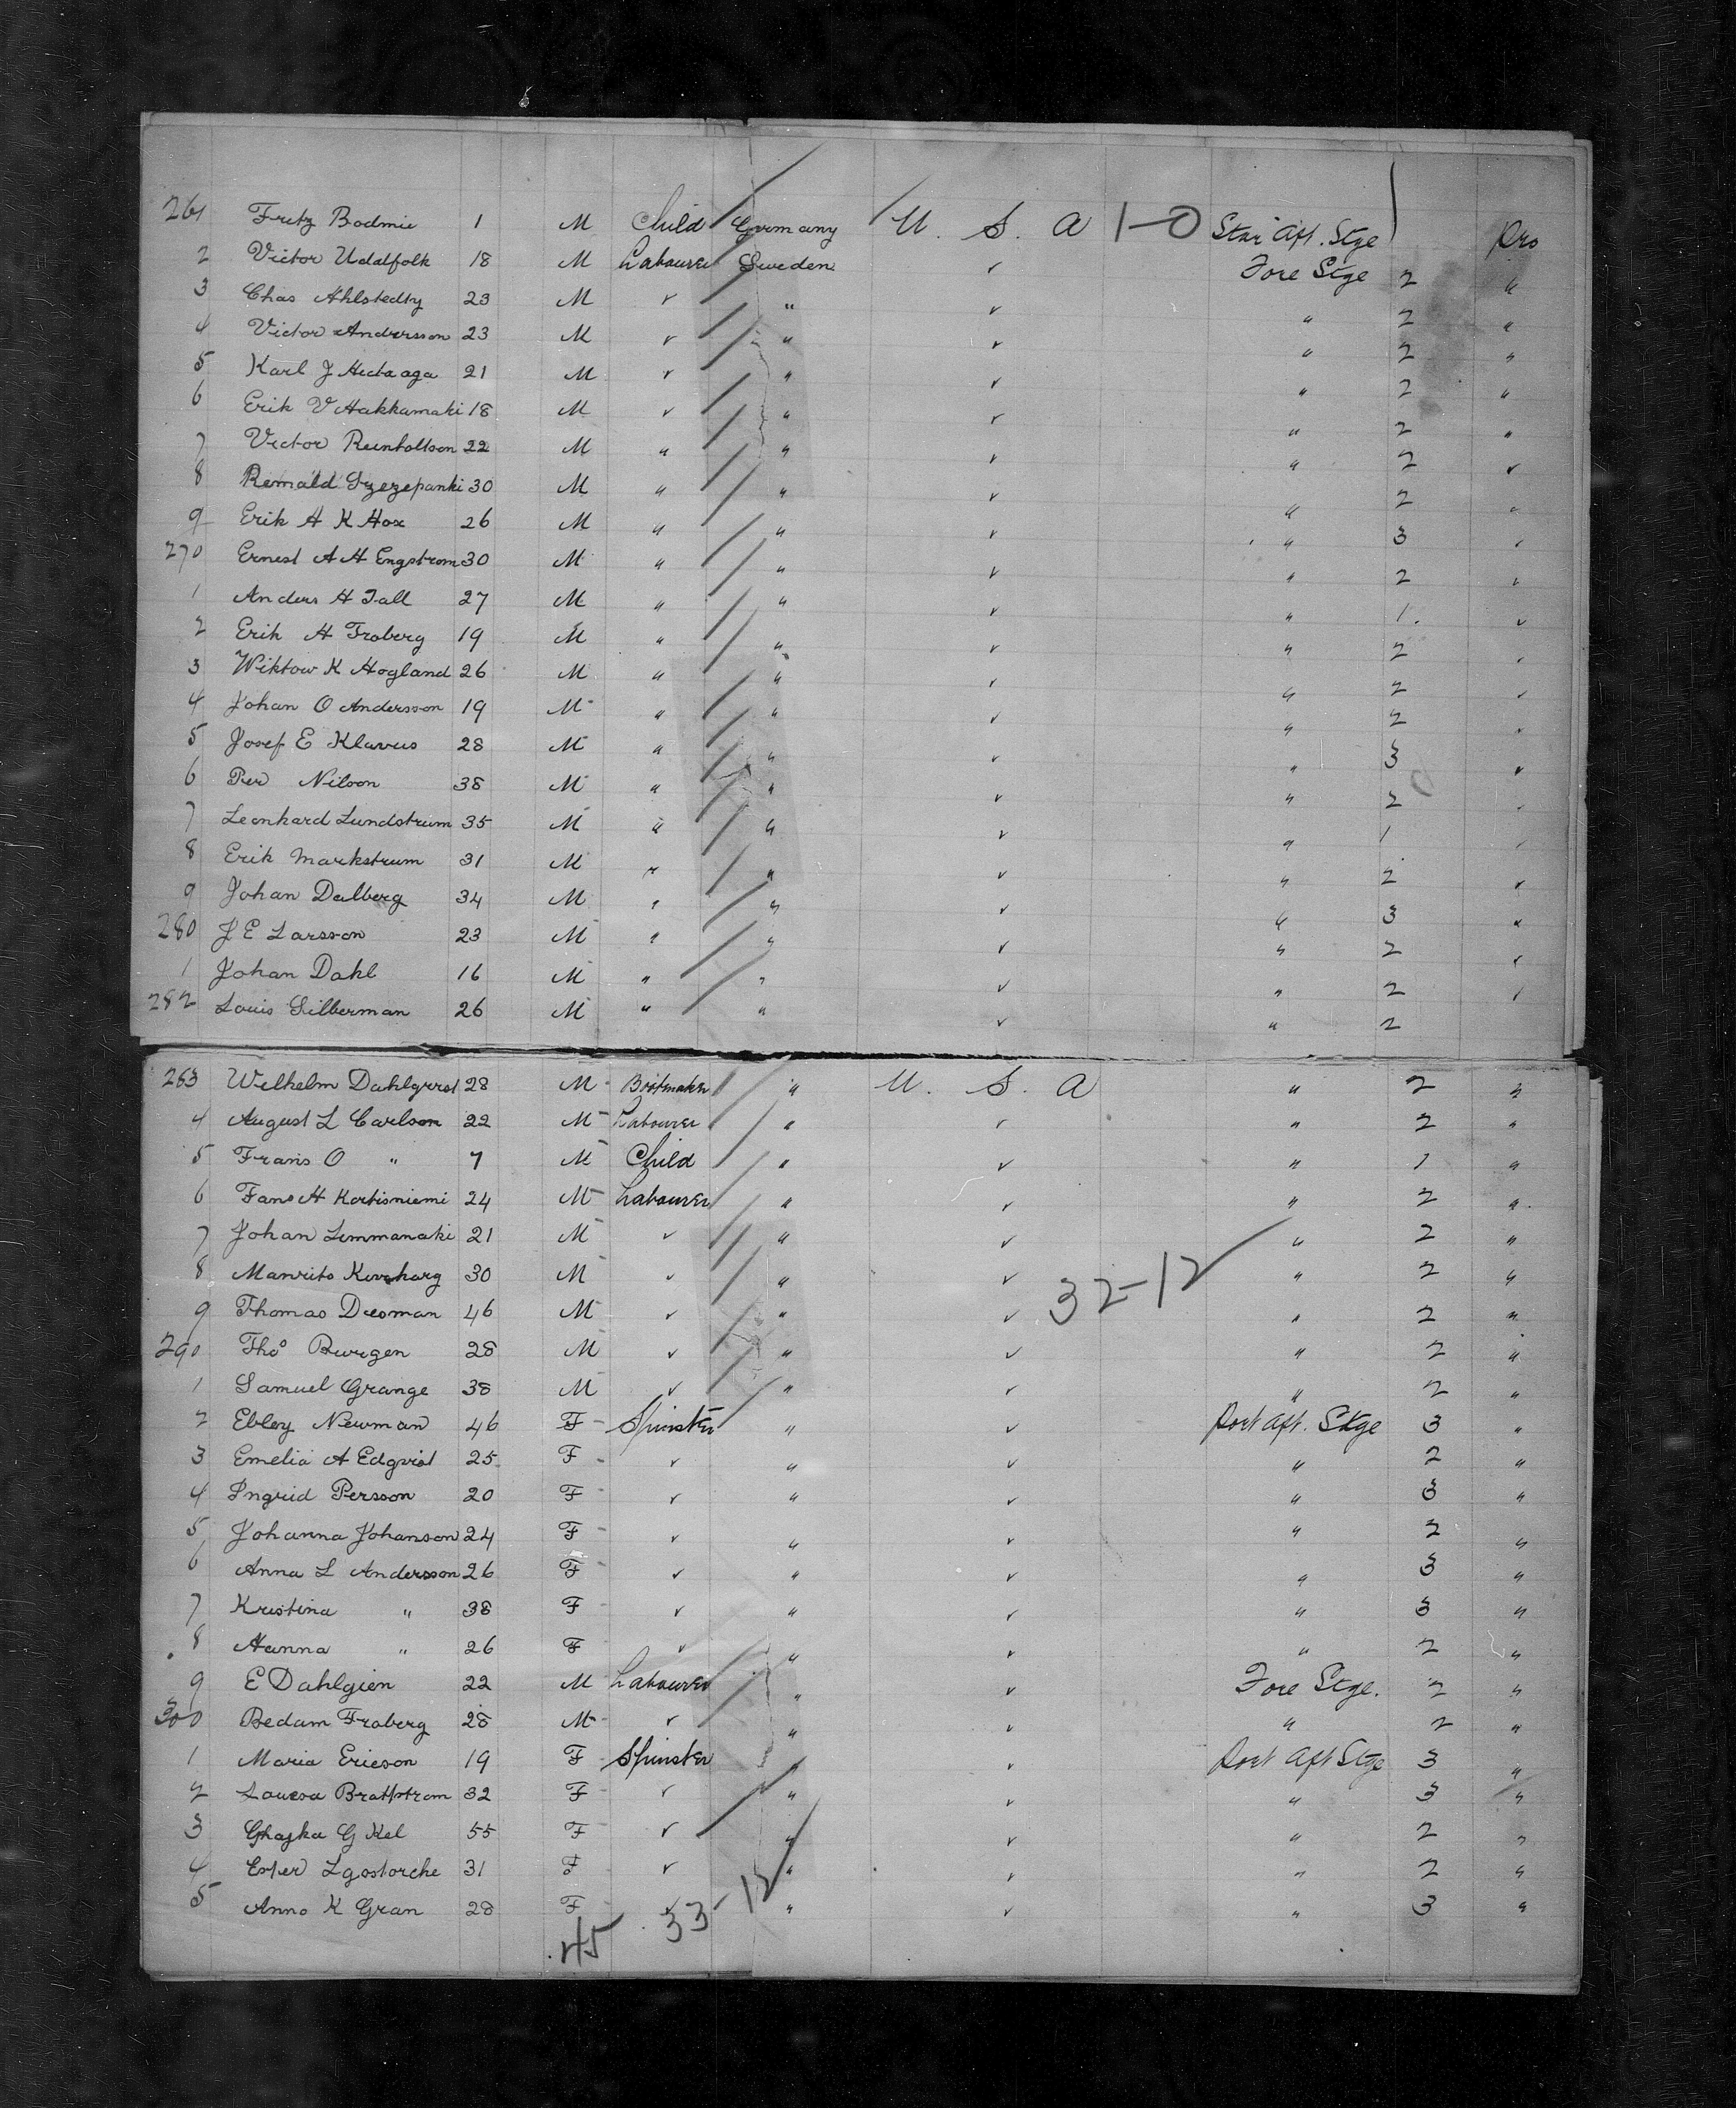 261 Fritz Bodmie 1 M Child Germany U. S. A 1-0 Star Aft. Stge Pro
2 Victor Udalfolk 18 M Labourer Sweden ✓ Fore Stge 2 "
3 Chas Ahlstedty 23 M ✓ " ✓ " 2 "
4 Victor Andersson 23 M ✓ " ✓ " 2 "
5 Karl J 21 M ✓ " ✓ " 2 "
6 Erik V Hakkamaki 18 M ✓ " ✓ " 2 "
7 Victor Reinholtson 22 M " " ✓ " 2 ✓
8 Remald 30 M " " ✓ " 2 ✓
9 Erik A K Hox 26 M " " ✓ " 3 ✓
270 Ernest A H Engstrom 30 M " " ✓ " 2 ✓
1 Anders H Fall 27 M " " ✓ " 1. ✓
2 Erik H Froberg 19 M " " ✓ " 2 ✓
3 Wiktow K Hogland 26 M " " ✓ " 2 ✓
4 Johan O Andersson 19 M " " ✓ " 2 ✓
5 Josef E Klavus 28 M " " ✓ " 3 ✓
6 Per Nilson 38 M " " ✓ " 2 ✓
7 Leonhard Lundstrum 35 M " " ✓ " 1 ✓
8 Erik Markstrum 31 M " " ✓ " 2 ✓
9 Johan Dalberg 34 M " " ✓ " 3 ✓
280 J E Larsson 23 M " " ✓ " 2 ✓
1 Johan Dahl 16 M " " ✓ " 2 ✓
282 Louis Silberman 26 M " " ✓ " 2
283 Wilhelm Dahlgvist 28 M Bootmaker " U. S. A " 2 "
4 August L Carlson 22 M Labourer " ✓ " 2 "
5 Frans O " 7 M Child " ✓ " 1 "
6 Fans H Kortisniemi 24 M Labourer " ✓ " 2 "
7 Johan Lemmanaki 21 M ✓ " ✓ " 2 "
8 Manrits 30 M ✓ " ✓ " 2 "
32-12
9 Thomas Duoman 46 M ✓ " ✓ " 2 "
290 Tho Burgen 28 M ✓ " ✓ " 2 "
1 Samuel Grange 38 M ✓ " ✓ " 2 "
2 Ebley Newman 46 F Spinster " ✓ Port Aft. Stge 3 "
3 Emelia A Edqvist 25 F ✓ " ✓ " 2 "
4 Ingrid Persson 20 F ✓ " ✓ " 3 "
5 Johanna Johanson 24 F ✓ " ✓ " 2 "
6 Anna L Andersson 26 F ✓ " ✓ " 3 "
7 Kristina " 38 F ✓ " ✓ " 3 "
8 Hanna " 26 F ✓ " ✓ " 2 "
9 E Dahlgien 22 M Labourer " ✓ Fore Stge. 2 "
300 Bedam Froberg 28 M ✓ " ✓ " 2 "
1 Maria Ericson 19 F Spinster " ✓ Port Aft Stge 3 "
2 Louesa Brattstrom 32 F ✓ " ✓ " 3 "
3 Ghajka G Kel 55 F ✓ " ✓ " 2 "
4 Ester Lgostorche 31 F ✓ " ✓ " 2 "
5 Anna K Gran 28 F ✓ " ✓ " 3 "
45 33-12